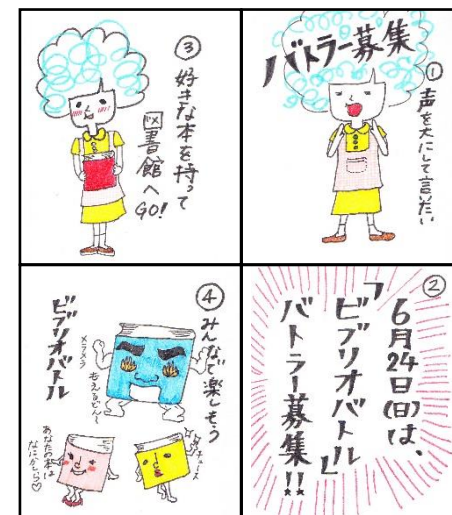 バトラー募集
①
声を大にして言いたい
②
6月24日(日)は、
「ビブリオバトル」
バトラー募集!!
③
好きな本を持って
図書館へ
GO!
④
みんなで楽しもう
ビブリオバトル
メラメラ
もえるどん〜
あなたの本は
なにかしら♡